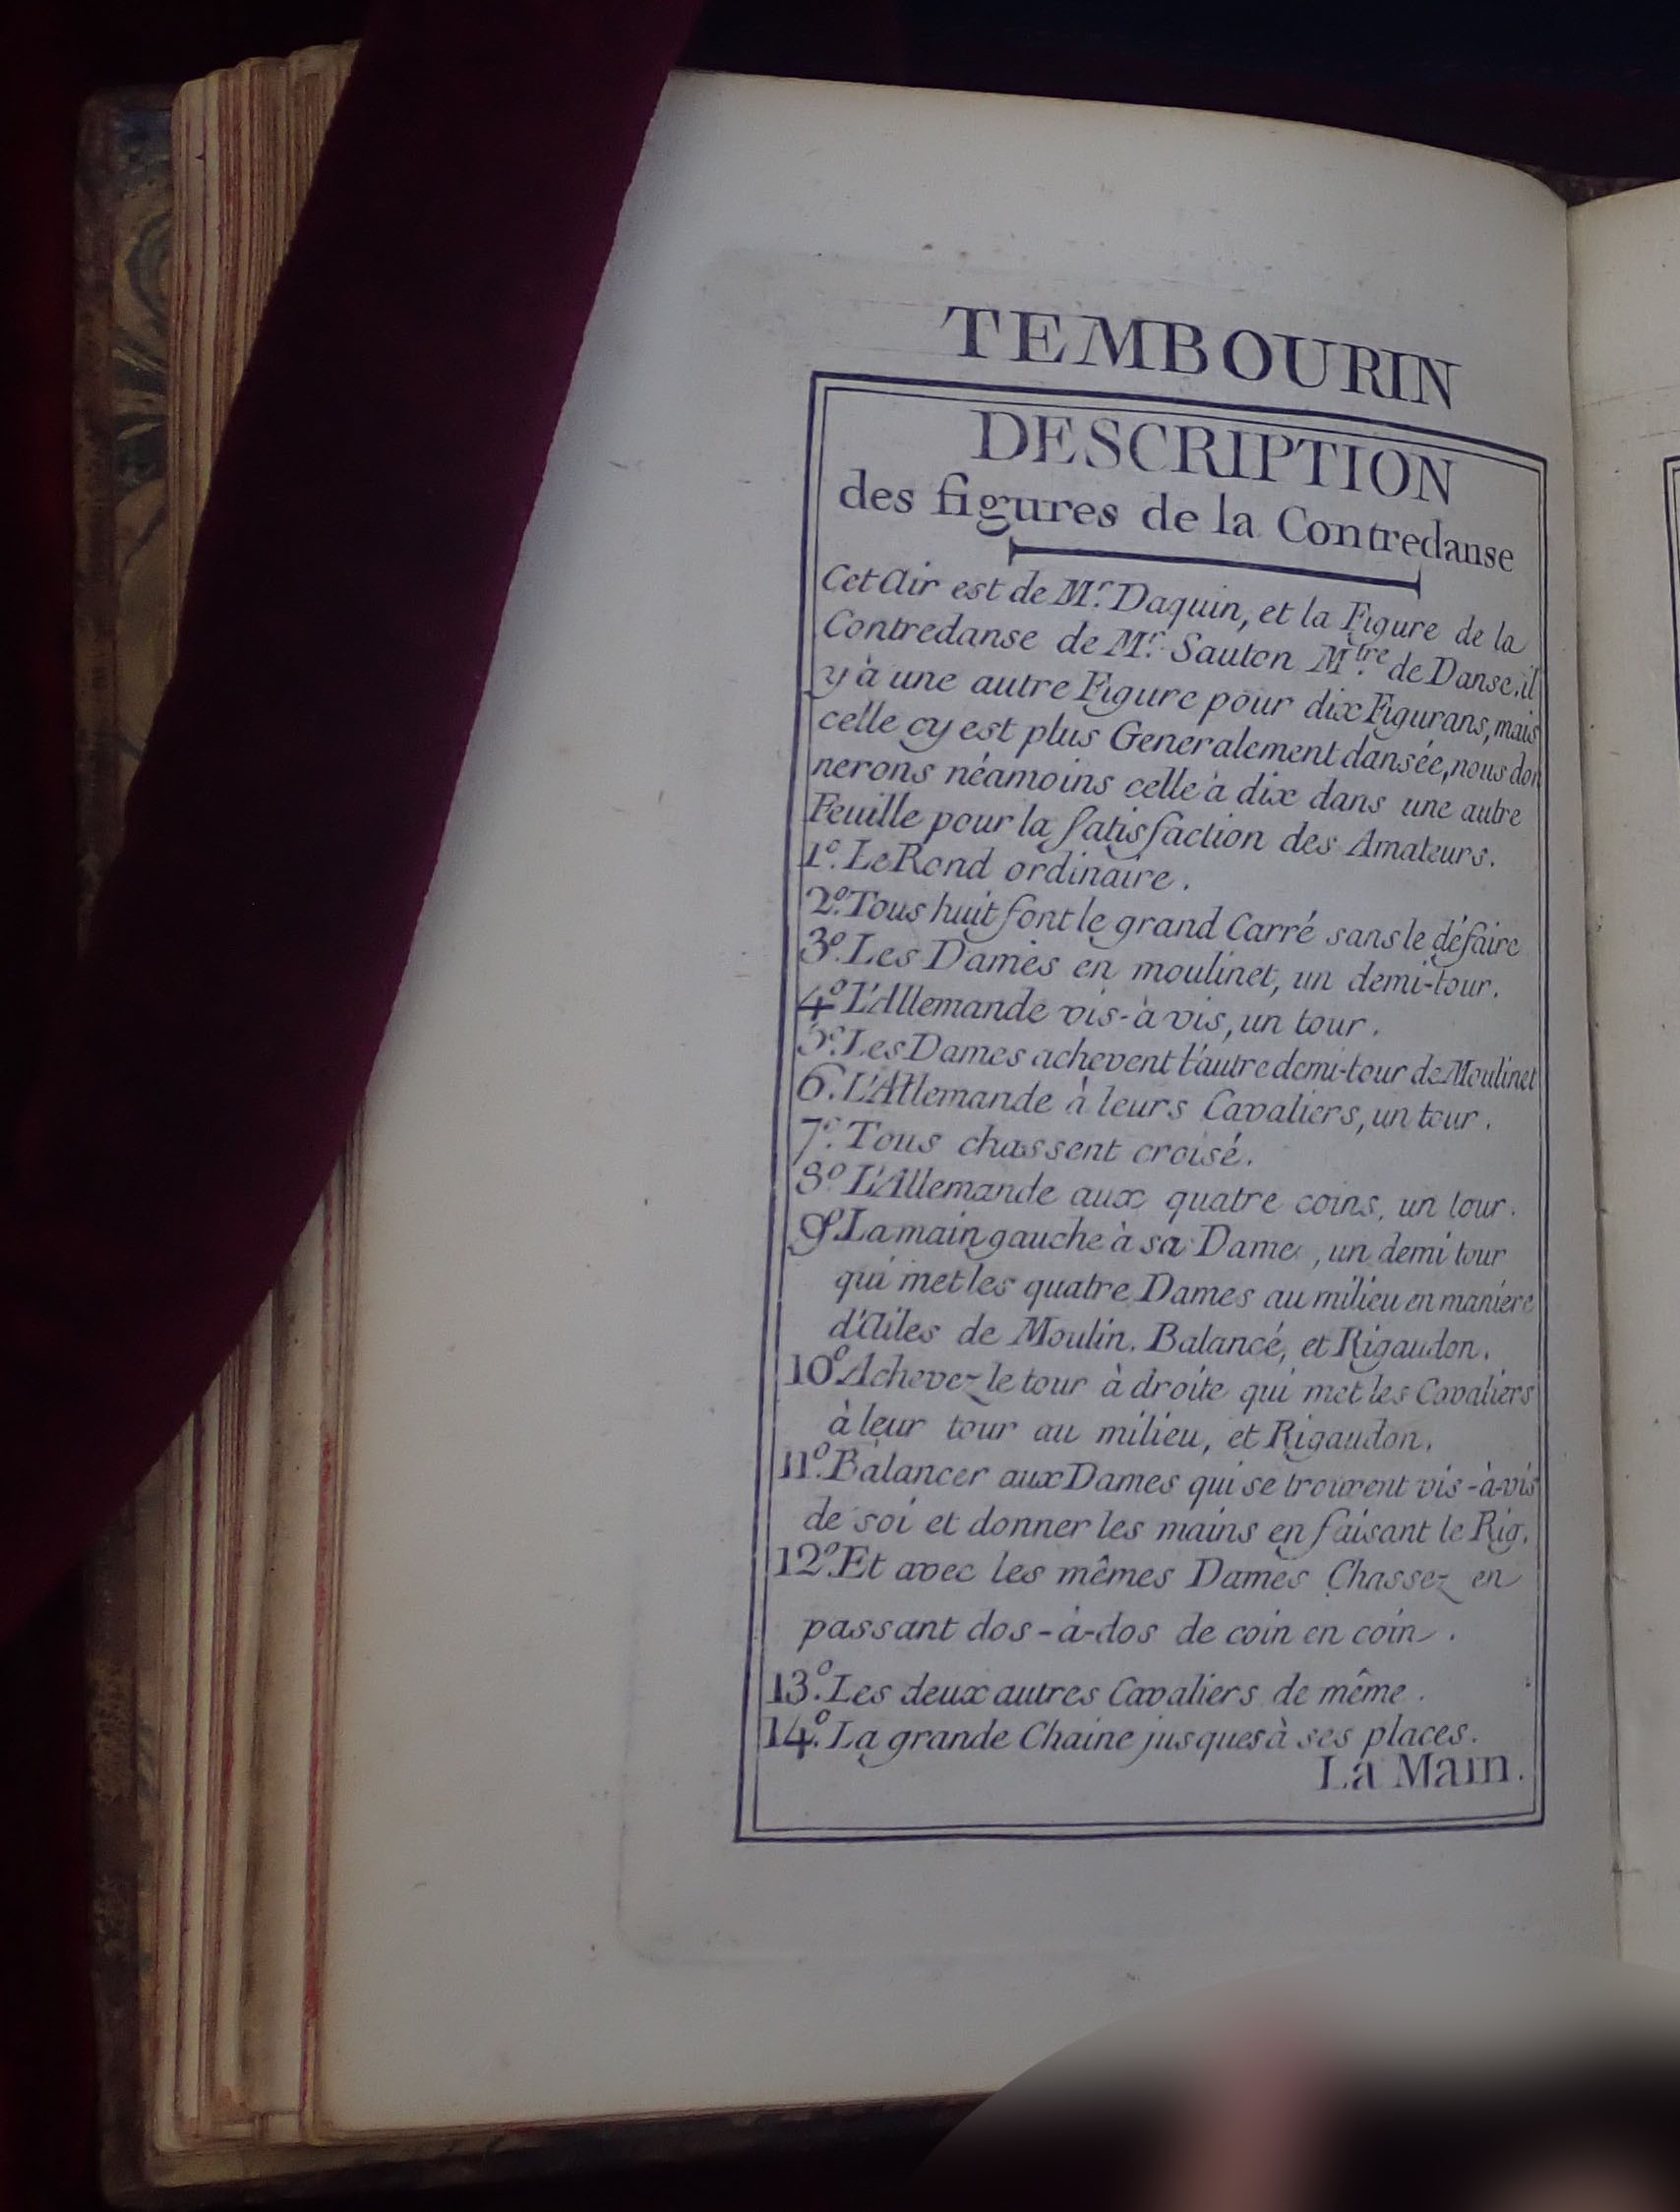 TEMBOURIN
DESCRIPTION
des figures de la Contredanse
Cet Air est de Mr. Daquin, et la Figure de la
Contredanse de Mr. Sauton Mtre. de Danse. il
y à une autre Figure pour dix Figurans, mais
celle cy est plus Generalement dansée, nous don
nerons néamoins celle à dix dans une autre
Feuille pour la satisfaction des Amateurs.
1º. Le Rond ordinaire.
2º. Tous huit font le grand Carré sans le défaire
3º. Les Dames en moulinet, un demi-tour.
4º. L'Allemande vis-à vis, un tour.
5º. Les Dames achevent l'autre demi-tour de Moulinet
6. L'Allemande à leurs Cavaliers, un tour.
7º. Tous chassent croisé.
8º L'Allemande aux quatre coins, un tour.
9º. La main gauche à sa Dame, un demi tour
qui met les quatre Dames au milieu en maniere
d'Ailes de Moulin. Balancé, et Rigaudon.
10º Achevez le tour à droite qui met les Cavaliers
à leur tour au milieu, et Rigaudon.
11º. Balancer aux Dames qui se trouvent vis-à-vis
de soi et donner les mains en faisant le Rig.
12º. Et avec les mêmes Dames Chassez en
passant dos-à-dos de coin en coin.
13º. Les deux autres Cavaliers de même.
14º. La grande Chaine jusques à ses places.
La Main.